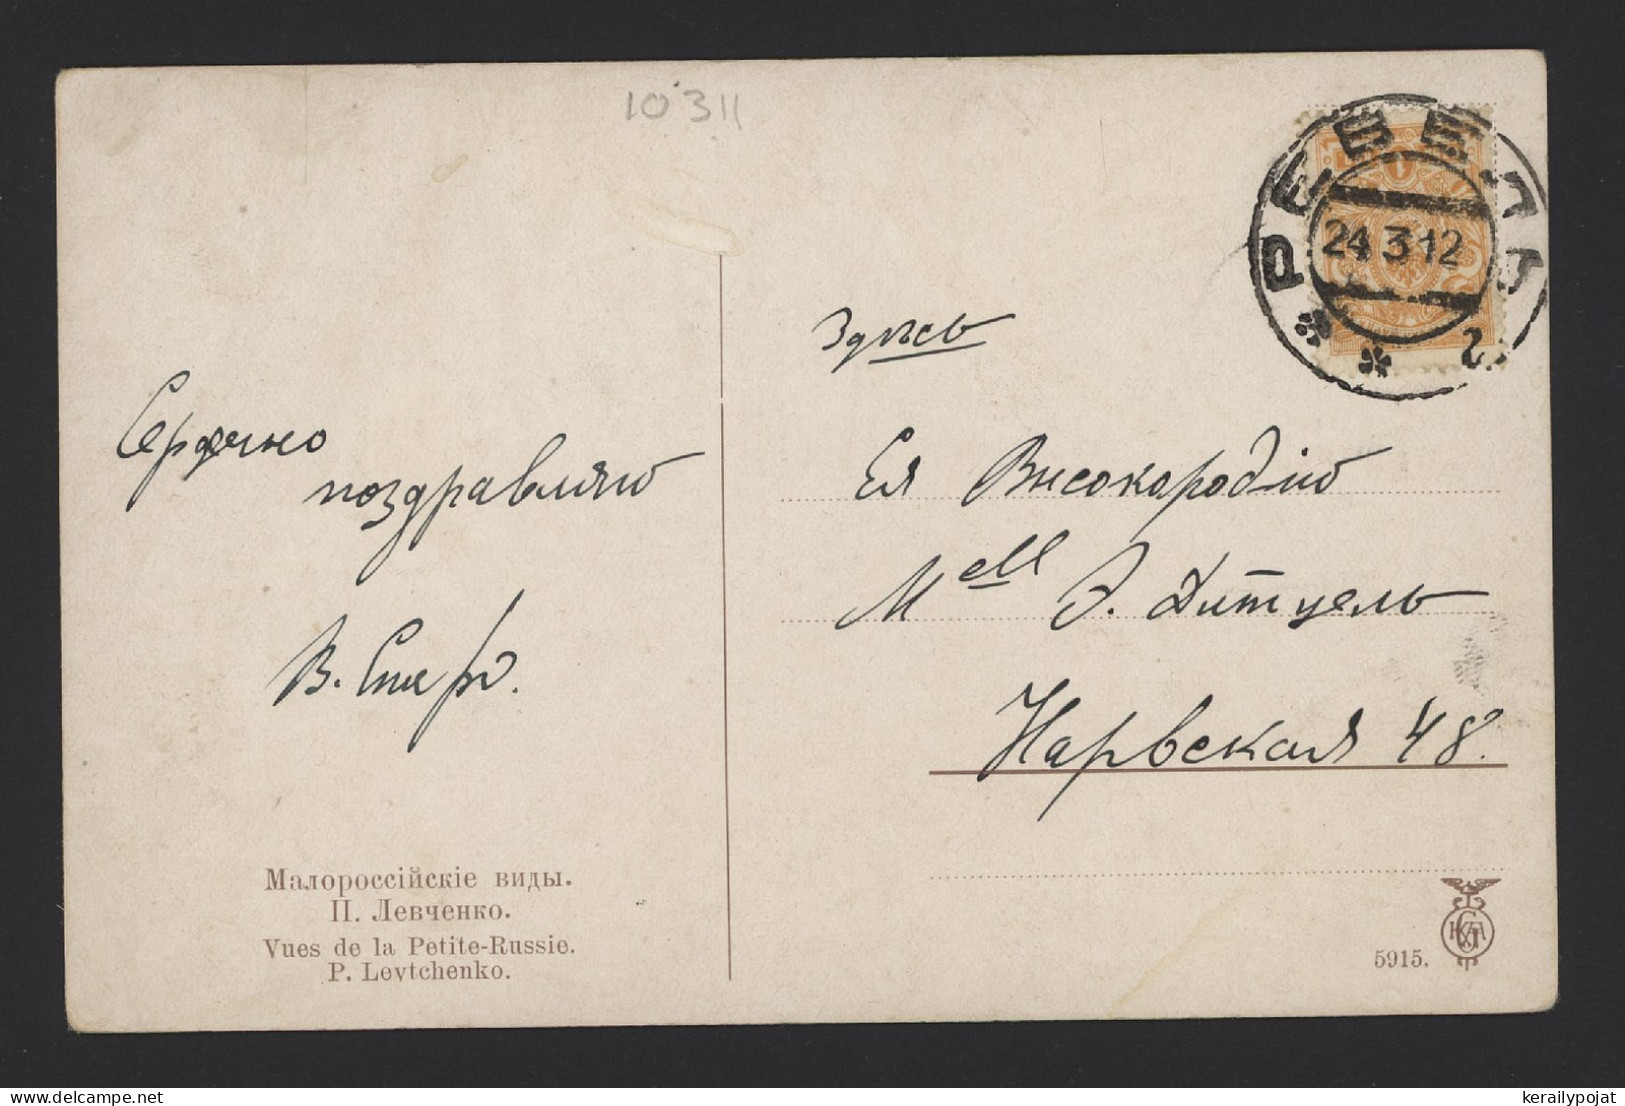 10311
РЕВЕЛЬ
24 3 12
г
1
Здѣсь
Сердечно
поздравляю
В.
Ея Высокородію
Mell Э. Дитцель
Нарвская 48.
Малороссійскіе виды.
П. Левченко.
Vues de la Petite-Russie.
P. Levtchenko.
5915.
delcampe.net
kerailypojat